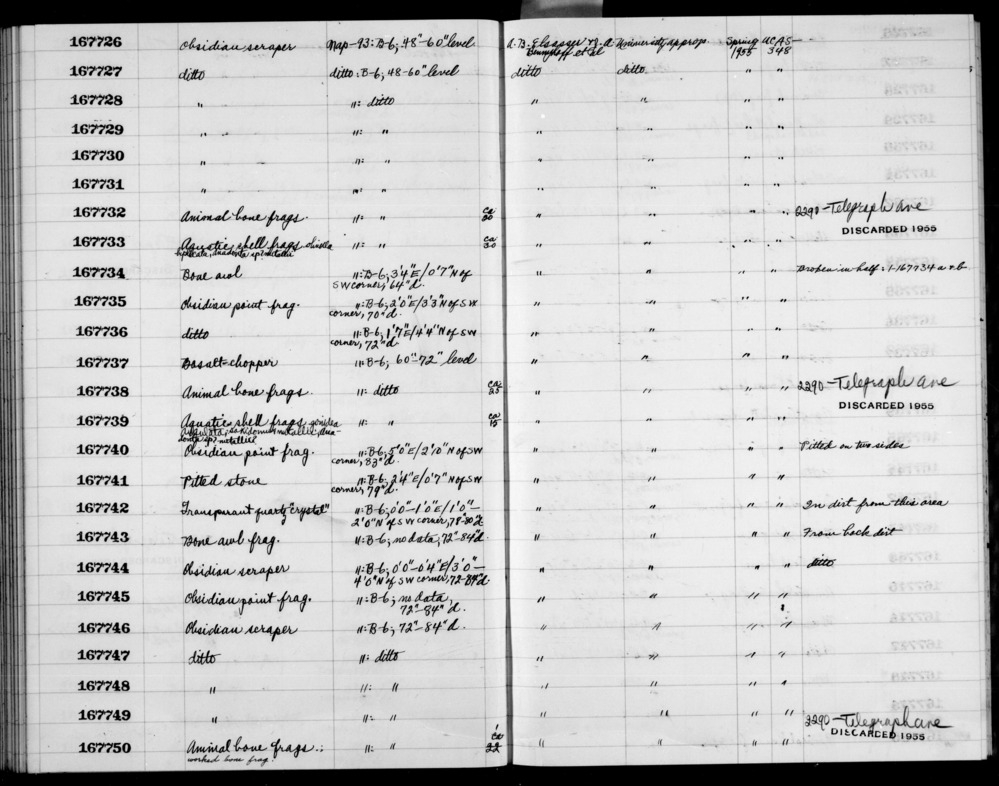 167726 Obsidian scraper Nap-93: B-6; 48"-60" level A.B. Elsasser & J.A. University approp. Spring UCAS-
Bennyhoff et al 1955 348
167727 ditto ditto: B-6; 48-60" level ditto ditto " "
167728 " ": ditto " " " "
167729 " " ": " " " " "
167730 " ": " " " " "
167731 " ": " " " " "
167732 Animal bone frags. ": " ca 20 " " " " 2290-Telegraph Ave
DISCARDED 1955
167733 Aquatic shell frags. olivella ": " ca 30 " " " "
167734 Bone awl ": B-6; 3'4"E/0'7"N of " " " " Broken in half: 1-167734 a & b
SW corner, 64"d.
167735 Obsidian point frag. ": B-6; 2'0"E/3'3"N of SW " " " "
corner, 70"d.
167736 ditto ": B-6; 1'7"E/4'4"N of SW " " " "
corner, 72"d.
167737 Basalt-chopper ": B-6; 60"-72" level " " " "
167738 Animal bone frags. ": ditto ca 25 " " " " 2290-Telegraph Ave
DISCARDED 1955
167739 Aquatic shell frags. ": " ca 15 " " " "
167740 Obsidian point frag. ": B-6; 5'0"E/2'0"N of SW " " " " Pitted on two sides
corner, 83"d.
167741 Pitted stone ": B-6; 2'4"E/0'7"N of SW " " " "
corner, 79"d.
167742 Transparant quartz "crystal" ": B-6; 0'0"-1'0"E/1'0"- " " " " In dirt from this area
2'0"N of SW corner, 78"-80"d.
167743 Bone awl frag. ": B-6; no data; 72"-84"d. " " " " From back dirt
167744 Obsidian scraper ": B-6; 0'0"-0'4"E/3'0"- " " " " ditto
4'0"N of SW corner, 72-84"d.
167745 Obsidian point frag. ": B-6; no data, " " " "
72"-84"d.
167746 Obsidian scraper ": B-6; 72"-84"d. " " " "
167747 ditto ": ditto " " " "
167748 " ": " " " " "
167749 " ": " " " " " 2290-Telegraph ave
DISCARDED 1955
167750 Animal bone frags.; ": " ca 22 " " " "
worked bone frag.